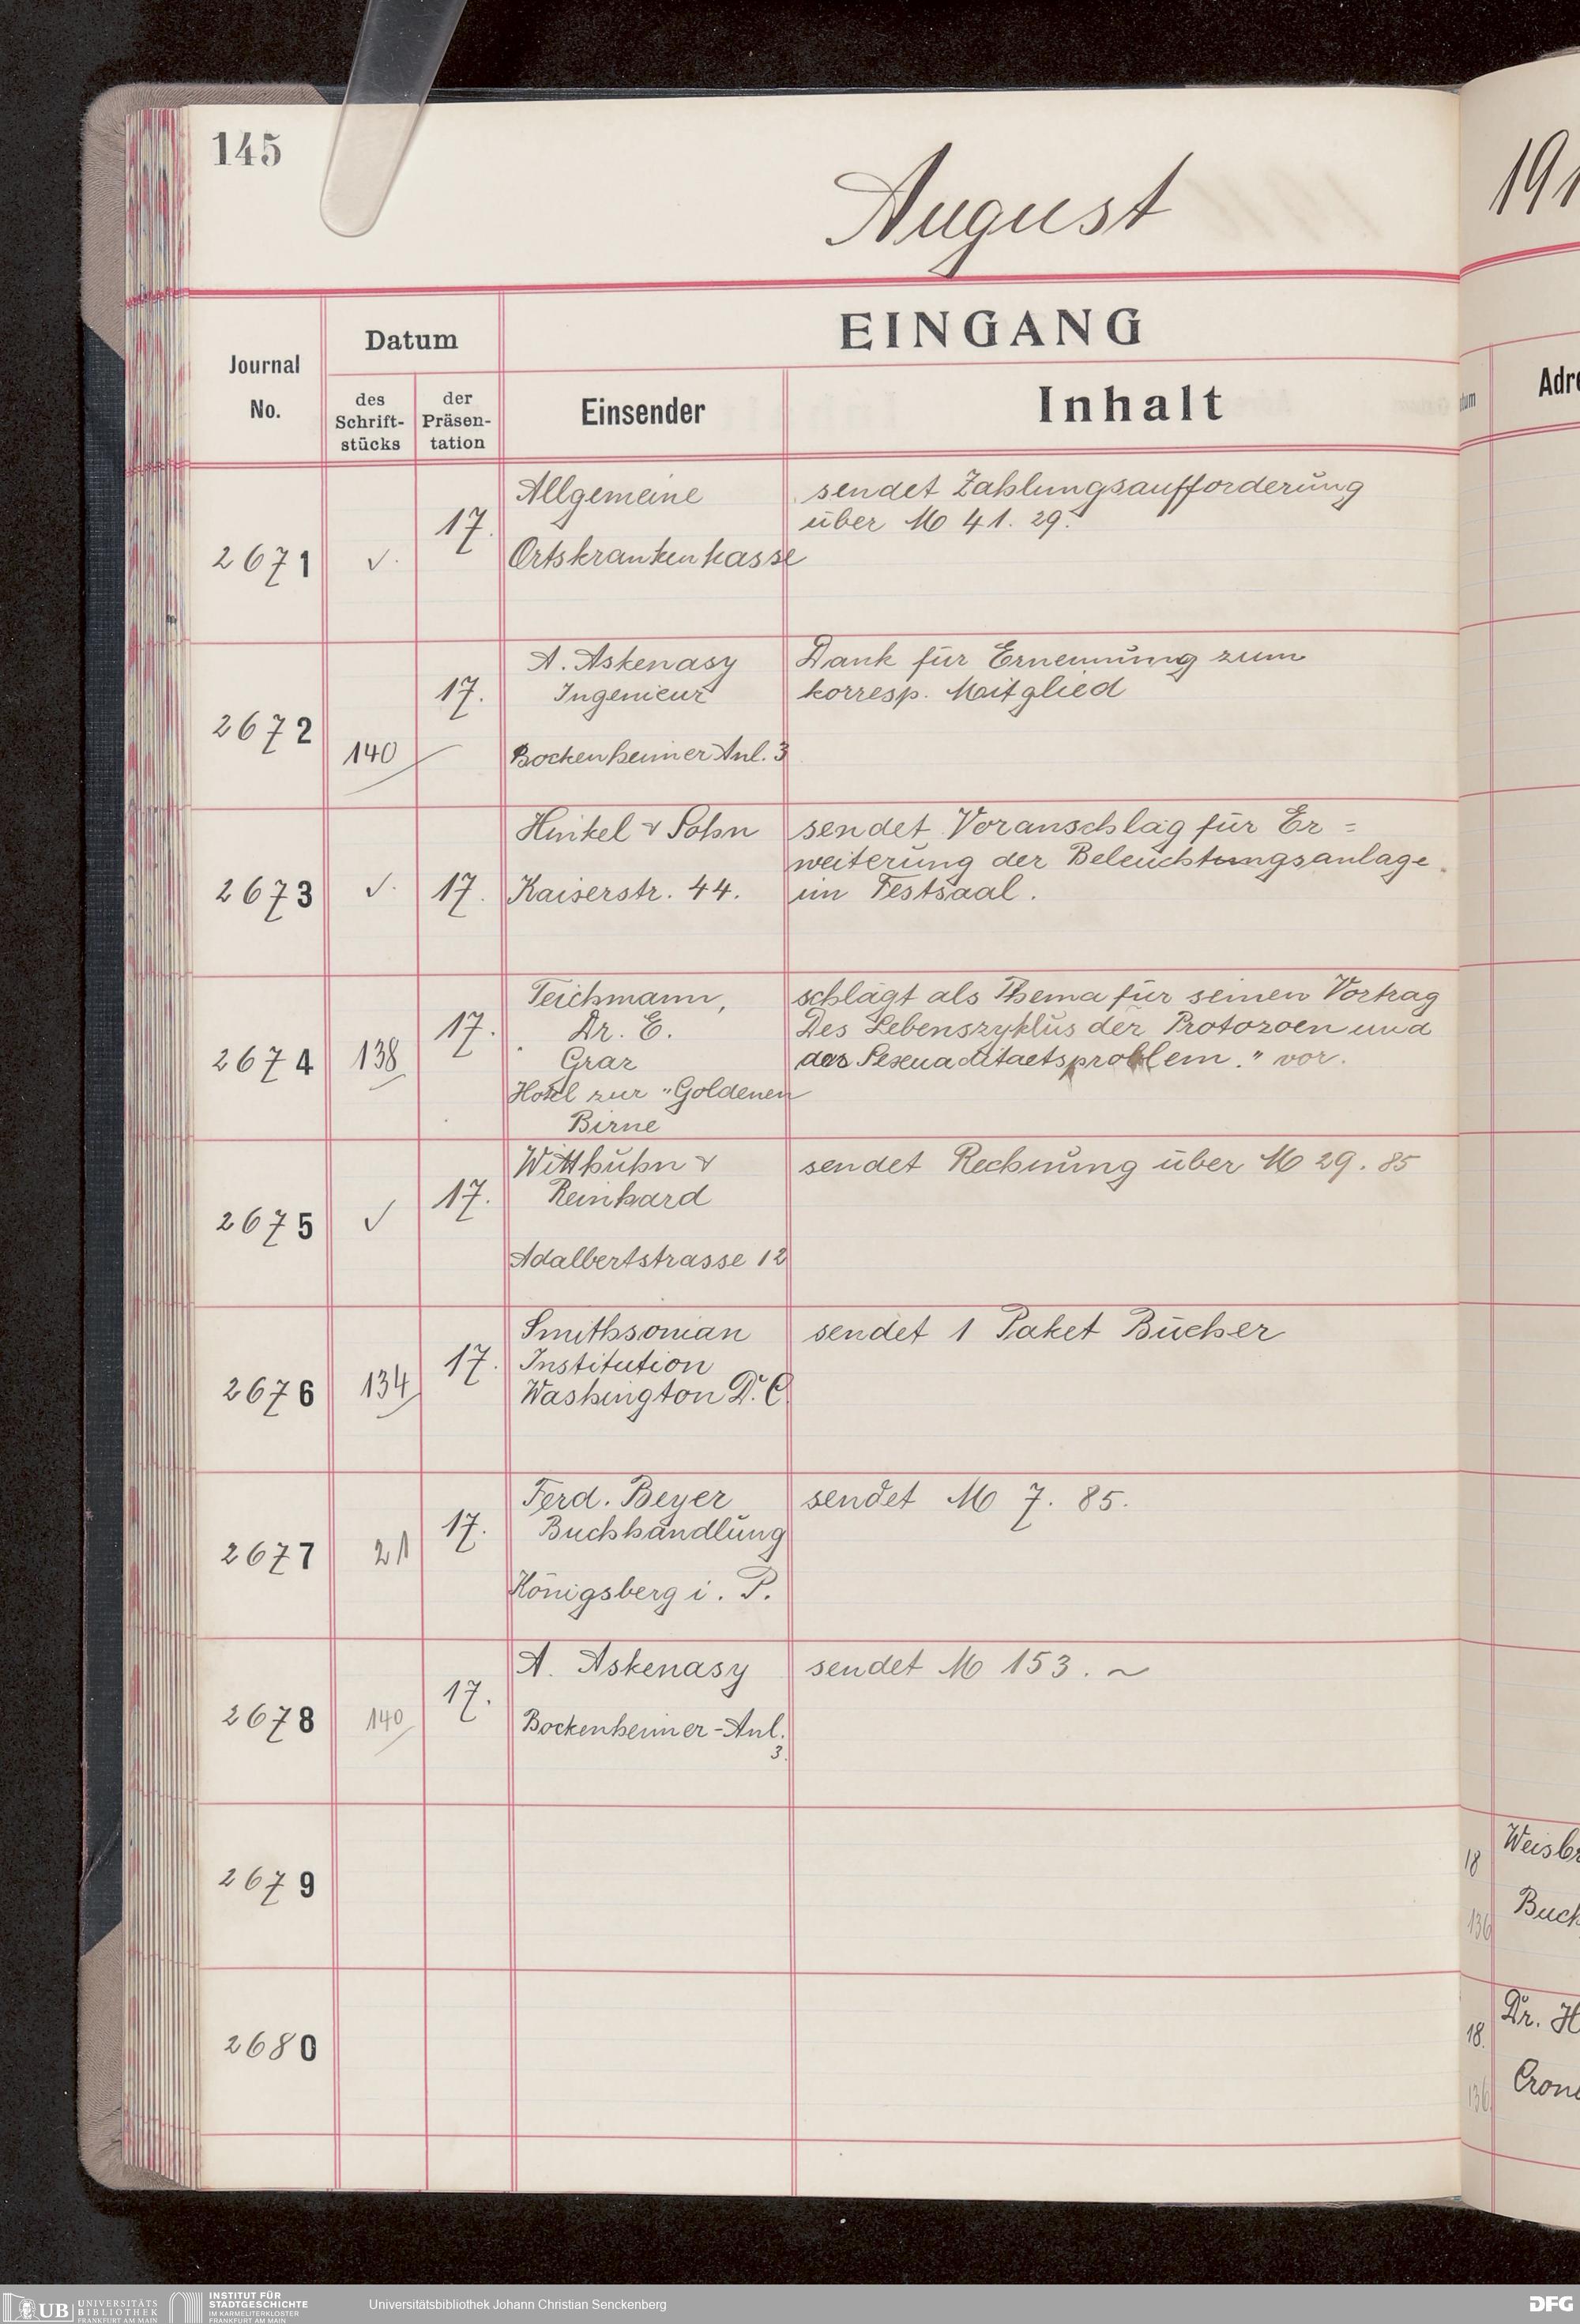 145
August
191
EINGANG
Journal No.
Datum
des Schrift-stücks
der Präsen-tation
Einsender
Inhalt
Adre
2671 ✓. 17.
Allgemeine
Ortskrankenkasse
sendet Zahlungsaufforderung
über M 41. 29.
2672 140 17.
A. Askenasy
Ingenieur
Bockenheimer Anl. 3
Dank für Ernennung zum
korresp. Mitglied
2673 ✓. 17.
Hinkel & Sohn
Kaiserstr. 44.
sendet Voranschlag für Er=
weiterung der Beleuchtungsanlage
im Festsaal.
2674 138 17.
Teichmann,
Dr. E.
Graz
Hotel zur "Goldenen
Birne
schlägt als Thema für seinen Vortrag
Des Lebenszyklus der Protozoen und
das Sexualitaetsproblem." vor.
2675 ✓ 17.
Wittkuhn &
Reinhard
Adalbertstrasse 12
sendet Rechnung über M 29. 85
2676 134 17.
Smithsonian
Institution
Washington D. C.
sendet 1 Paket Bücher
2677 21 17.
Ferd. Beyer
Buchhandlung
Königsberg i. P.
sendet M 7. 85.
2678 140 17.
A. Askenasy
Bockenheimer-Anl.
3.
sendet M 153. ~
2679
2680
18
Weisbr
136
Buch
18.
Dr. H
136
Cron
UB UNIVERSITÄTS
BIBLIOTHEK
FRANKFURT AM MAIN
INSTITUT FÜR
STADTGESCHICHTE
IM KARMELITERKLOSTER
FRANKFURT AM MAIN
Universitätsbibliothek Johann Christian Senckenberg
DFG